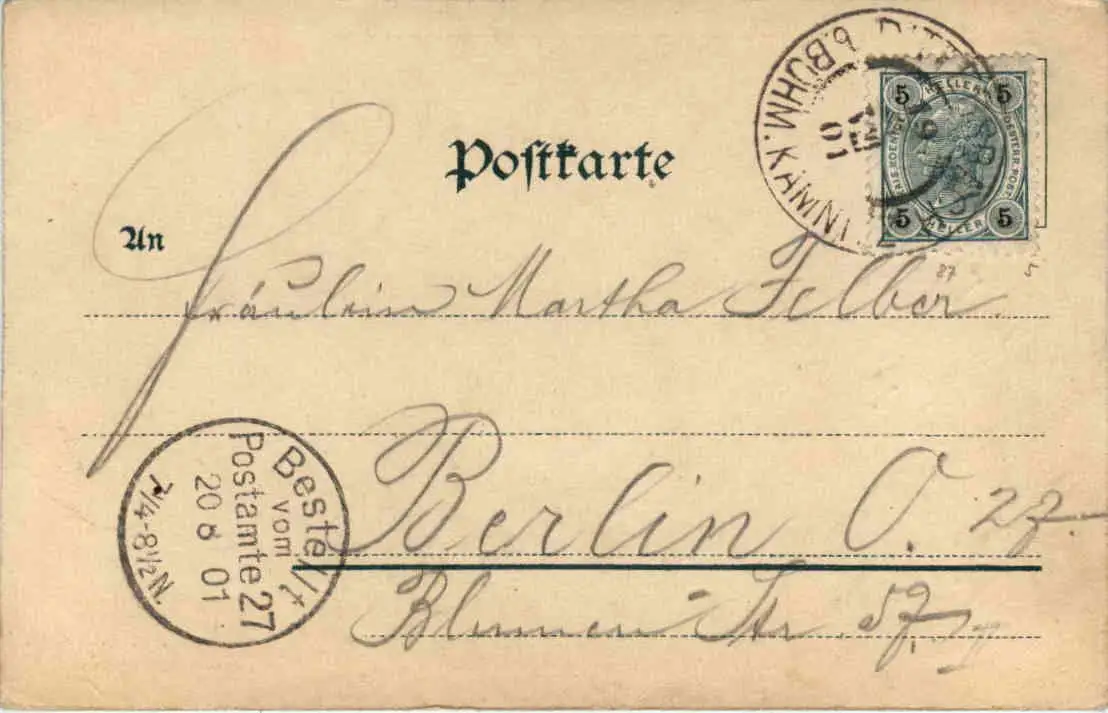 Postkarte
An
Fräulein Martha Felber.
Berlin O. 27
Blumen Str. 57, I
b. BÖHM. KAMNI
01
5 HELLER 5
5 HELLER 5
87 5
Bestellt
vom
Postamte 27
20 8 01
7¼-8½N.